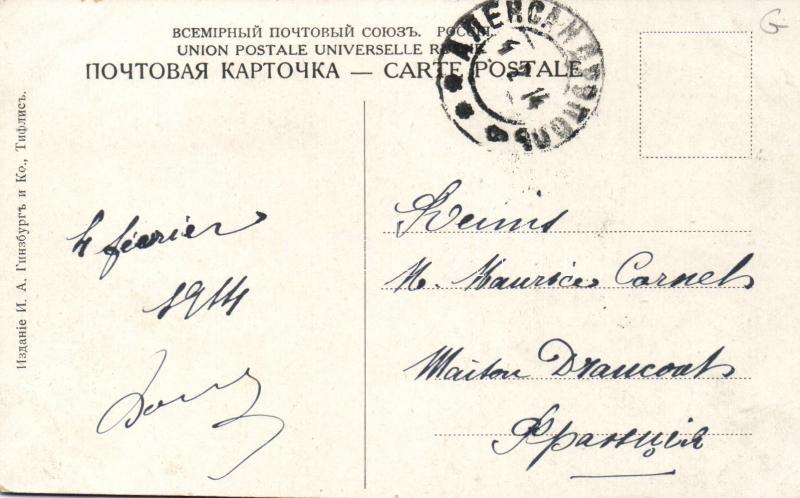 ВСЕМІРНЫЙ ПОЧТОВЫЙ СОЮЗЪ. РОССІЯ.
UNION POSTALE UNIVERSELLE RUSSIE.
ПОЧТОВАЯ КАРТОЧКА — CARTE POSTALE
АЛЕКСАНДРОПОЛЬ
14
G
Изданіе И. А. Гинзбургъ и Ко., Тифлисъ.
4 février
1914
Reims
M. Maurice Cornet
Maison
Франція